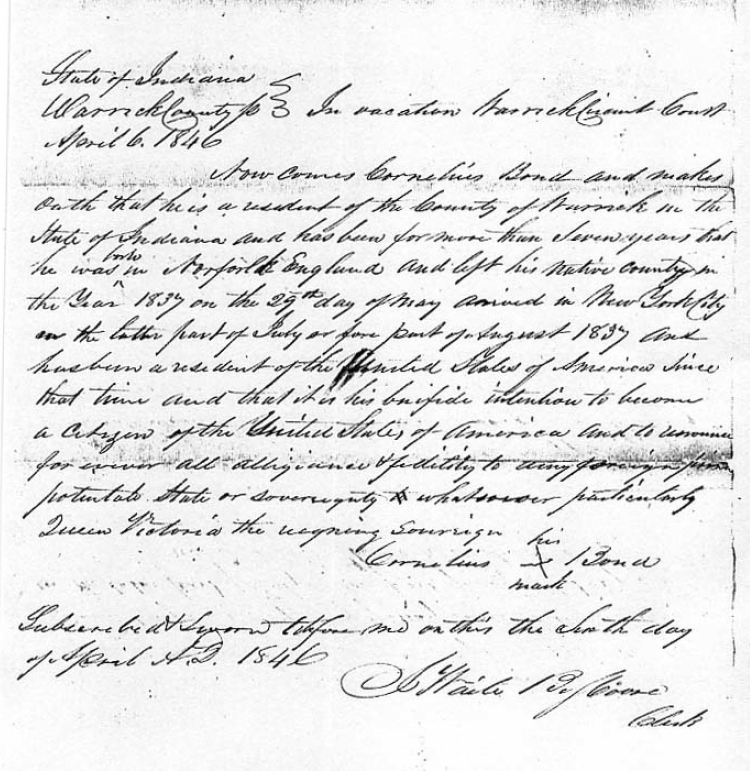 State of Indiana
Warrick County ss } In vacation Warrick Circuit Court
April 6. 1846
Now comes Cornelius Bond and makes
oath that he is a resident of the County of Warrick in the
State of Indiana and has been for more than Seven years that
he was born in Norfolk England and left his native country in
the Year 1837 on the 29th day of May arrived in New York City
in the latter part of July or fore part of August 1837 and
has been a resident of the United States of America Since
that time and that it is his bonifide intention to become
a Citizen of the United States of America and to renounce
for ever all alligiance & fidility to any foreign prince
potentate State or sovereignty whatsoever particularly
Queen Victoria the reigning Sovereign
his
Cornelius X Bond
mark
Subscribed & Sworn to before me on this the Sixth day
of April A.D. 1846
Clerk